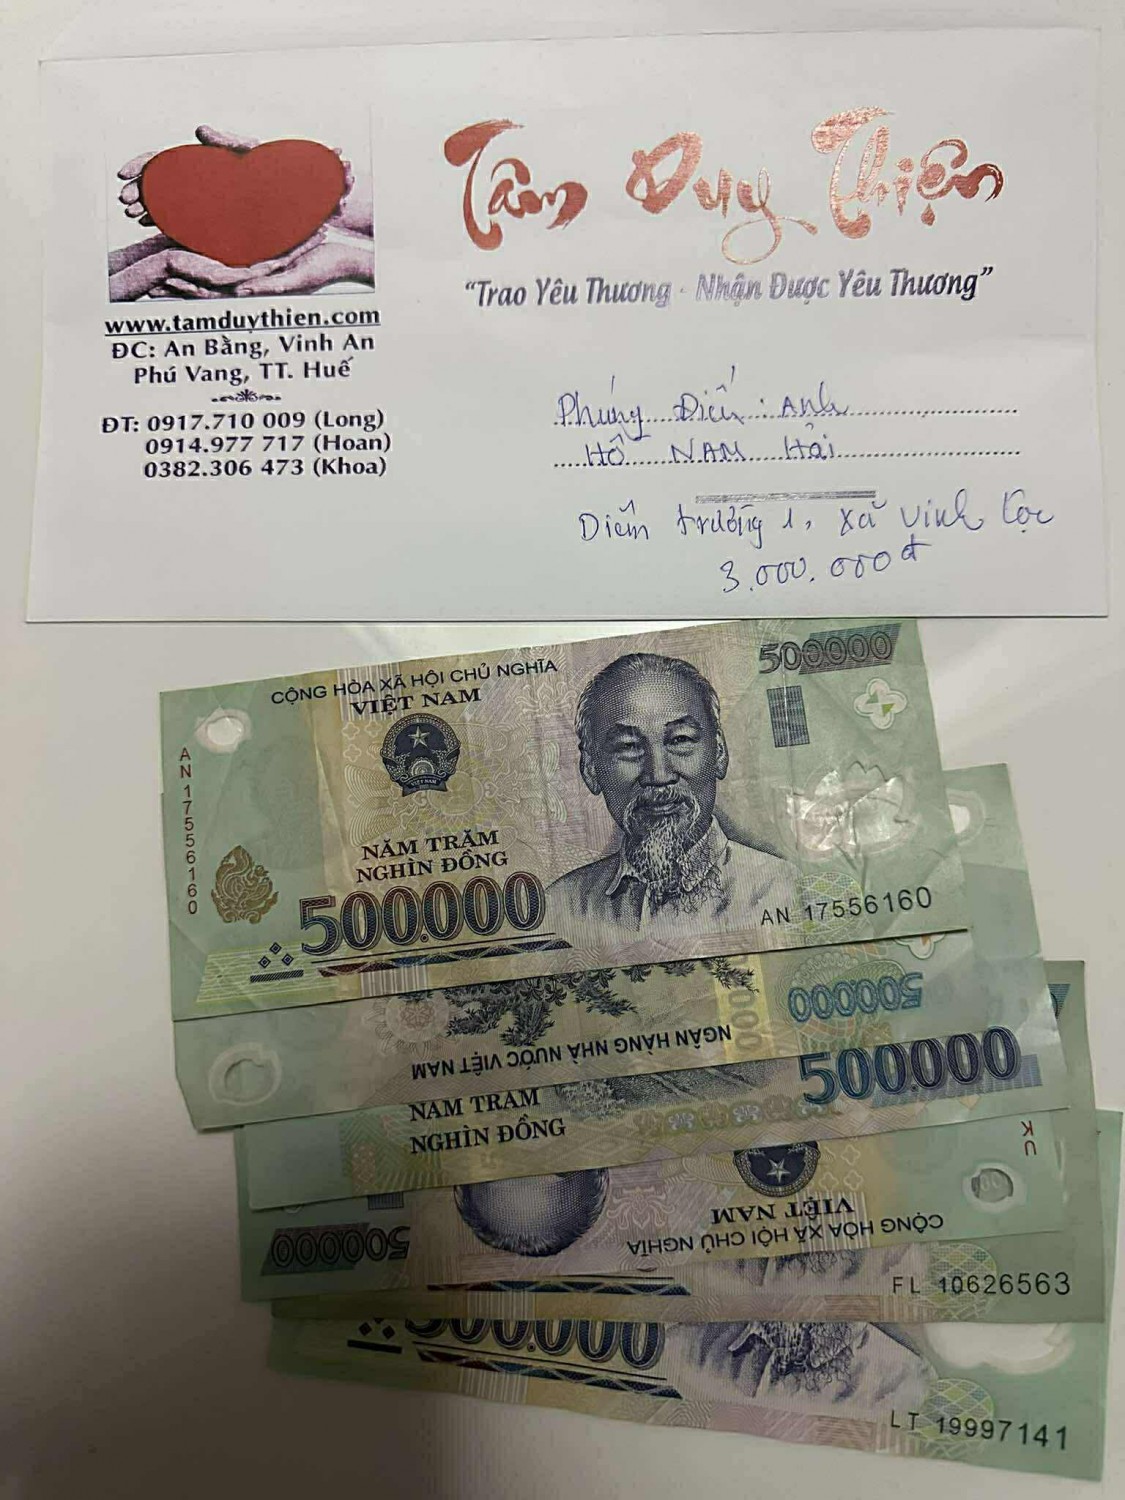 Tâm Duy Thiện
"Trao Yêu Thương - Nhận Được Yêu Thương"
www.tamduythien.com
ĐC: An Bằng, Vinh An
Phú Vang, TT. Huế
ĐT: 0917.710 009 (Long)
0914.977 717 (Hoan)
0382.306 473 (Khoa)
Phúng Điếu: Anh
HỒ NAM Hải
Điểm trường 1, xã Vinh Lộc
3.000.000đ
CỘNG HÒA XÃ HỘI CHỦ NGHĨA
VIỆT NAM
500000
AN 17556160
NĂM TRĂM
NGHÌN ĐỒNG
500.000
AN 17556160
500000
NGÂN HÀNG NHÀ NƯỚC VIỆT NAM
500.000
NĂM TRĂM
NGHÌN ĐỒNG
KU
VIỆT NAM
CỘNG HÒA XÃ HỘI CHỦ NGHĨA
500000
FL 10626563
500.000
LT 19997141